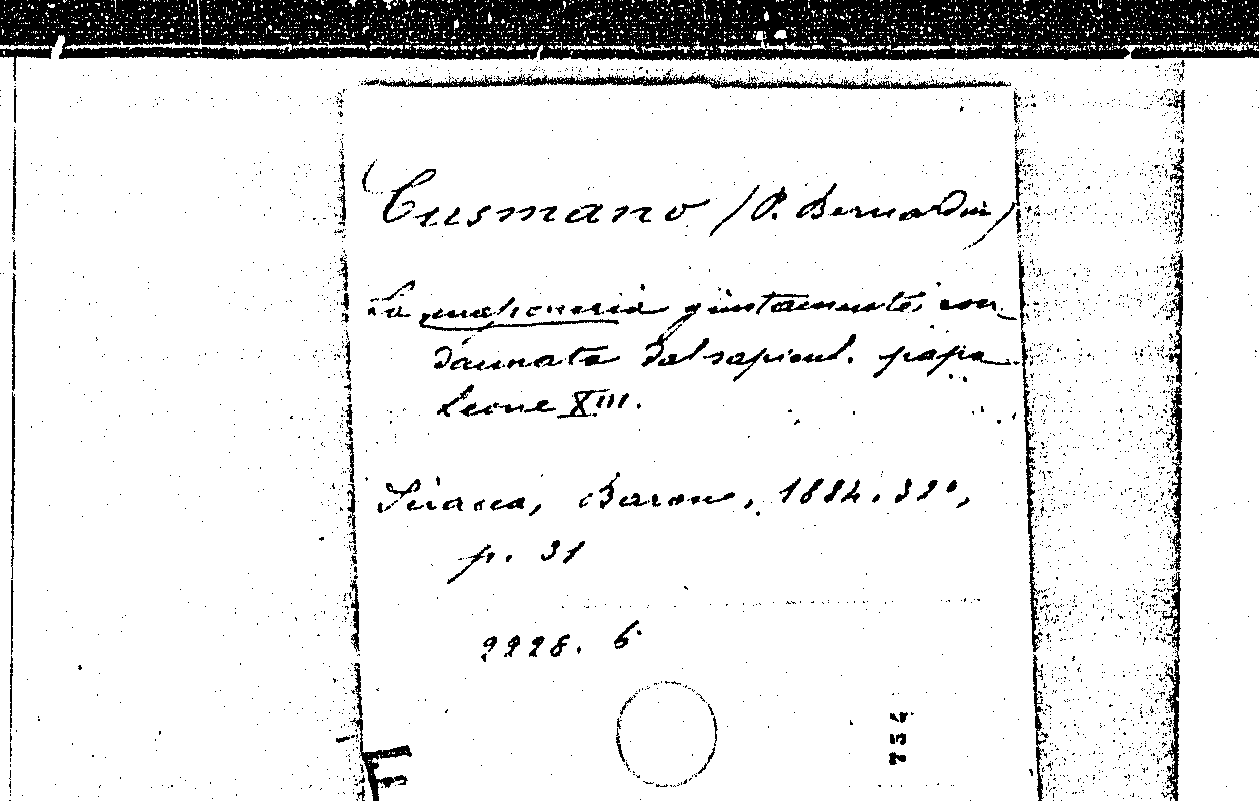 Cusmano (P. Bernardin)
La massoneria giustamente con
dannata dal sapient. papa
Leone XIII.
Sciacca, Barone, 1884. 32°,
p. 31
2228. 6
754